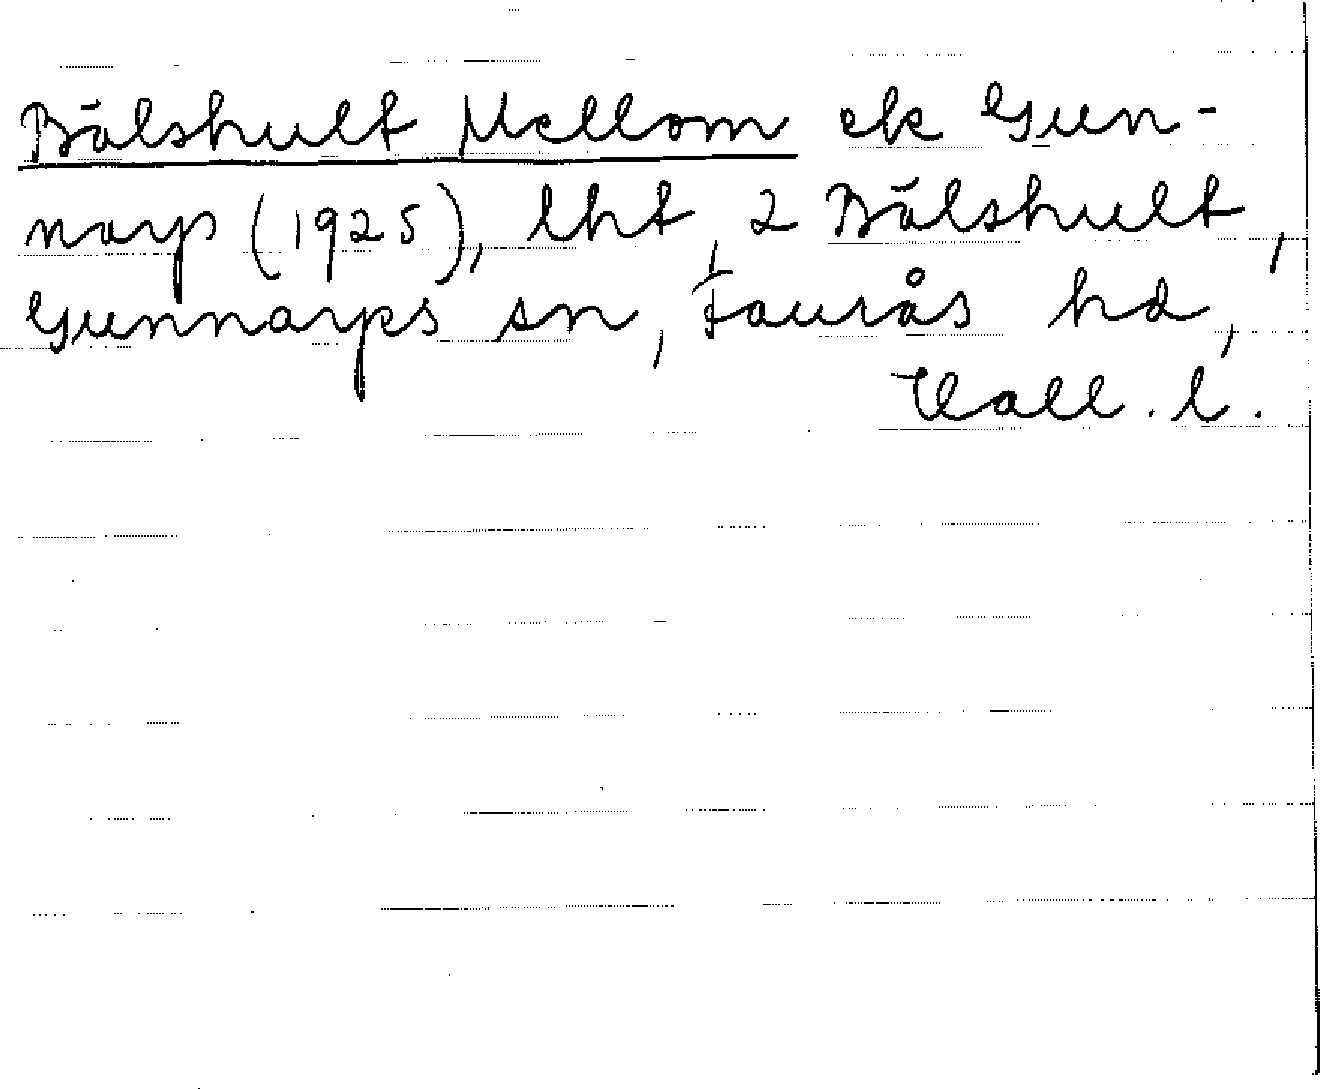 Bälshult Mellom ek Gun-
narp (1925), lht, 2 Bälshult,
Gunnarps sn, Faurås hd,
Hall. l.